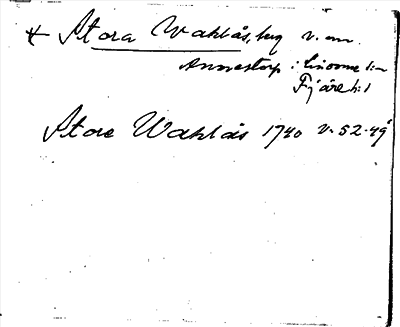 * Stora Wahlås, berg v. om
Annestorp i Lindome sn
Fjäre hd
Store Wahlås 1740 v. 52. 49